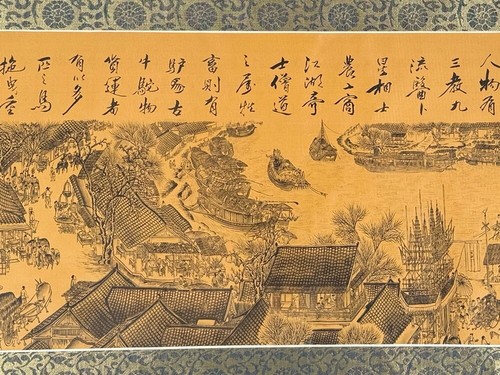 人物有
三教九
流醫卜
星相士
農工商
江湖
士僧道
之屬牲
畜則有
驴
牛駝物
貨運者
有以多
匹之馬
拖